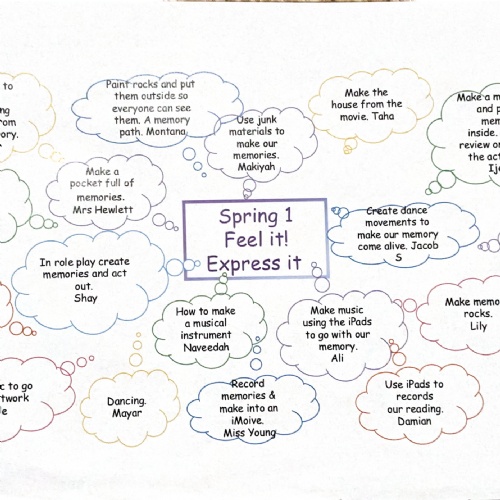 to
Paint rocks and put
them outside so
everyone can see
them. A memory
path. Montana
Use junk
materials to
make our
memories.
Makiyah
Make the
house from the
movie. Taha
Make a
inside.
review
the act
Make a
pocket full of
memories.
Mrs Hewlett
Spring 1
Feel it!
Express it
Create dance
movements to
make our memory
come alive. Jacob
S
In role play create
memories and act
out.
Shay
How to make
a musical
instrument
Naveedah
Make music
using the iPads
to go with our
memory.
Ali
Make memo
rocks.
Lily
c to go
twork
Dancing.
Mayar
Record
memories &
make into an
iMoive.
Miss Young
Use iPads to
records
our reading.
Damian